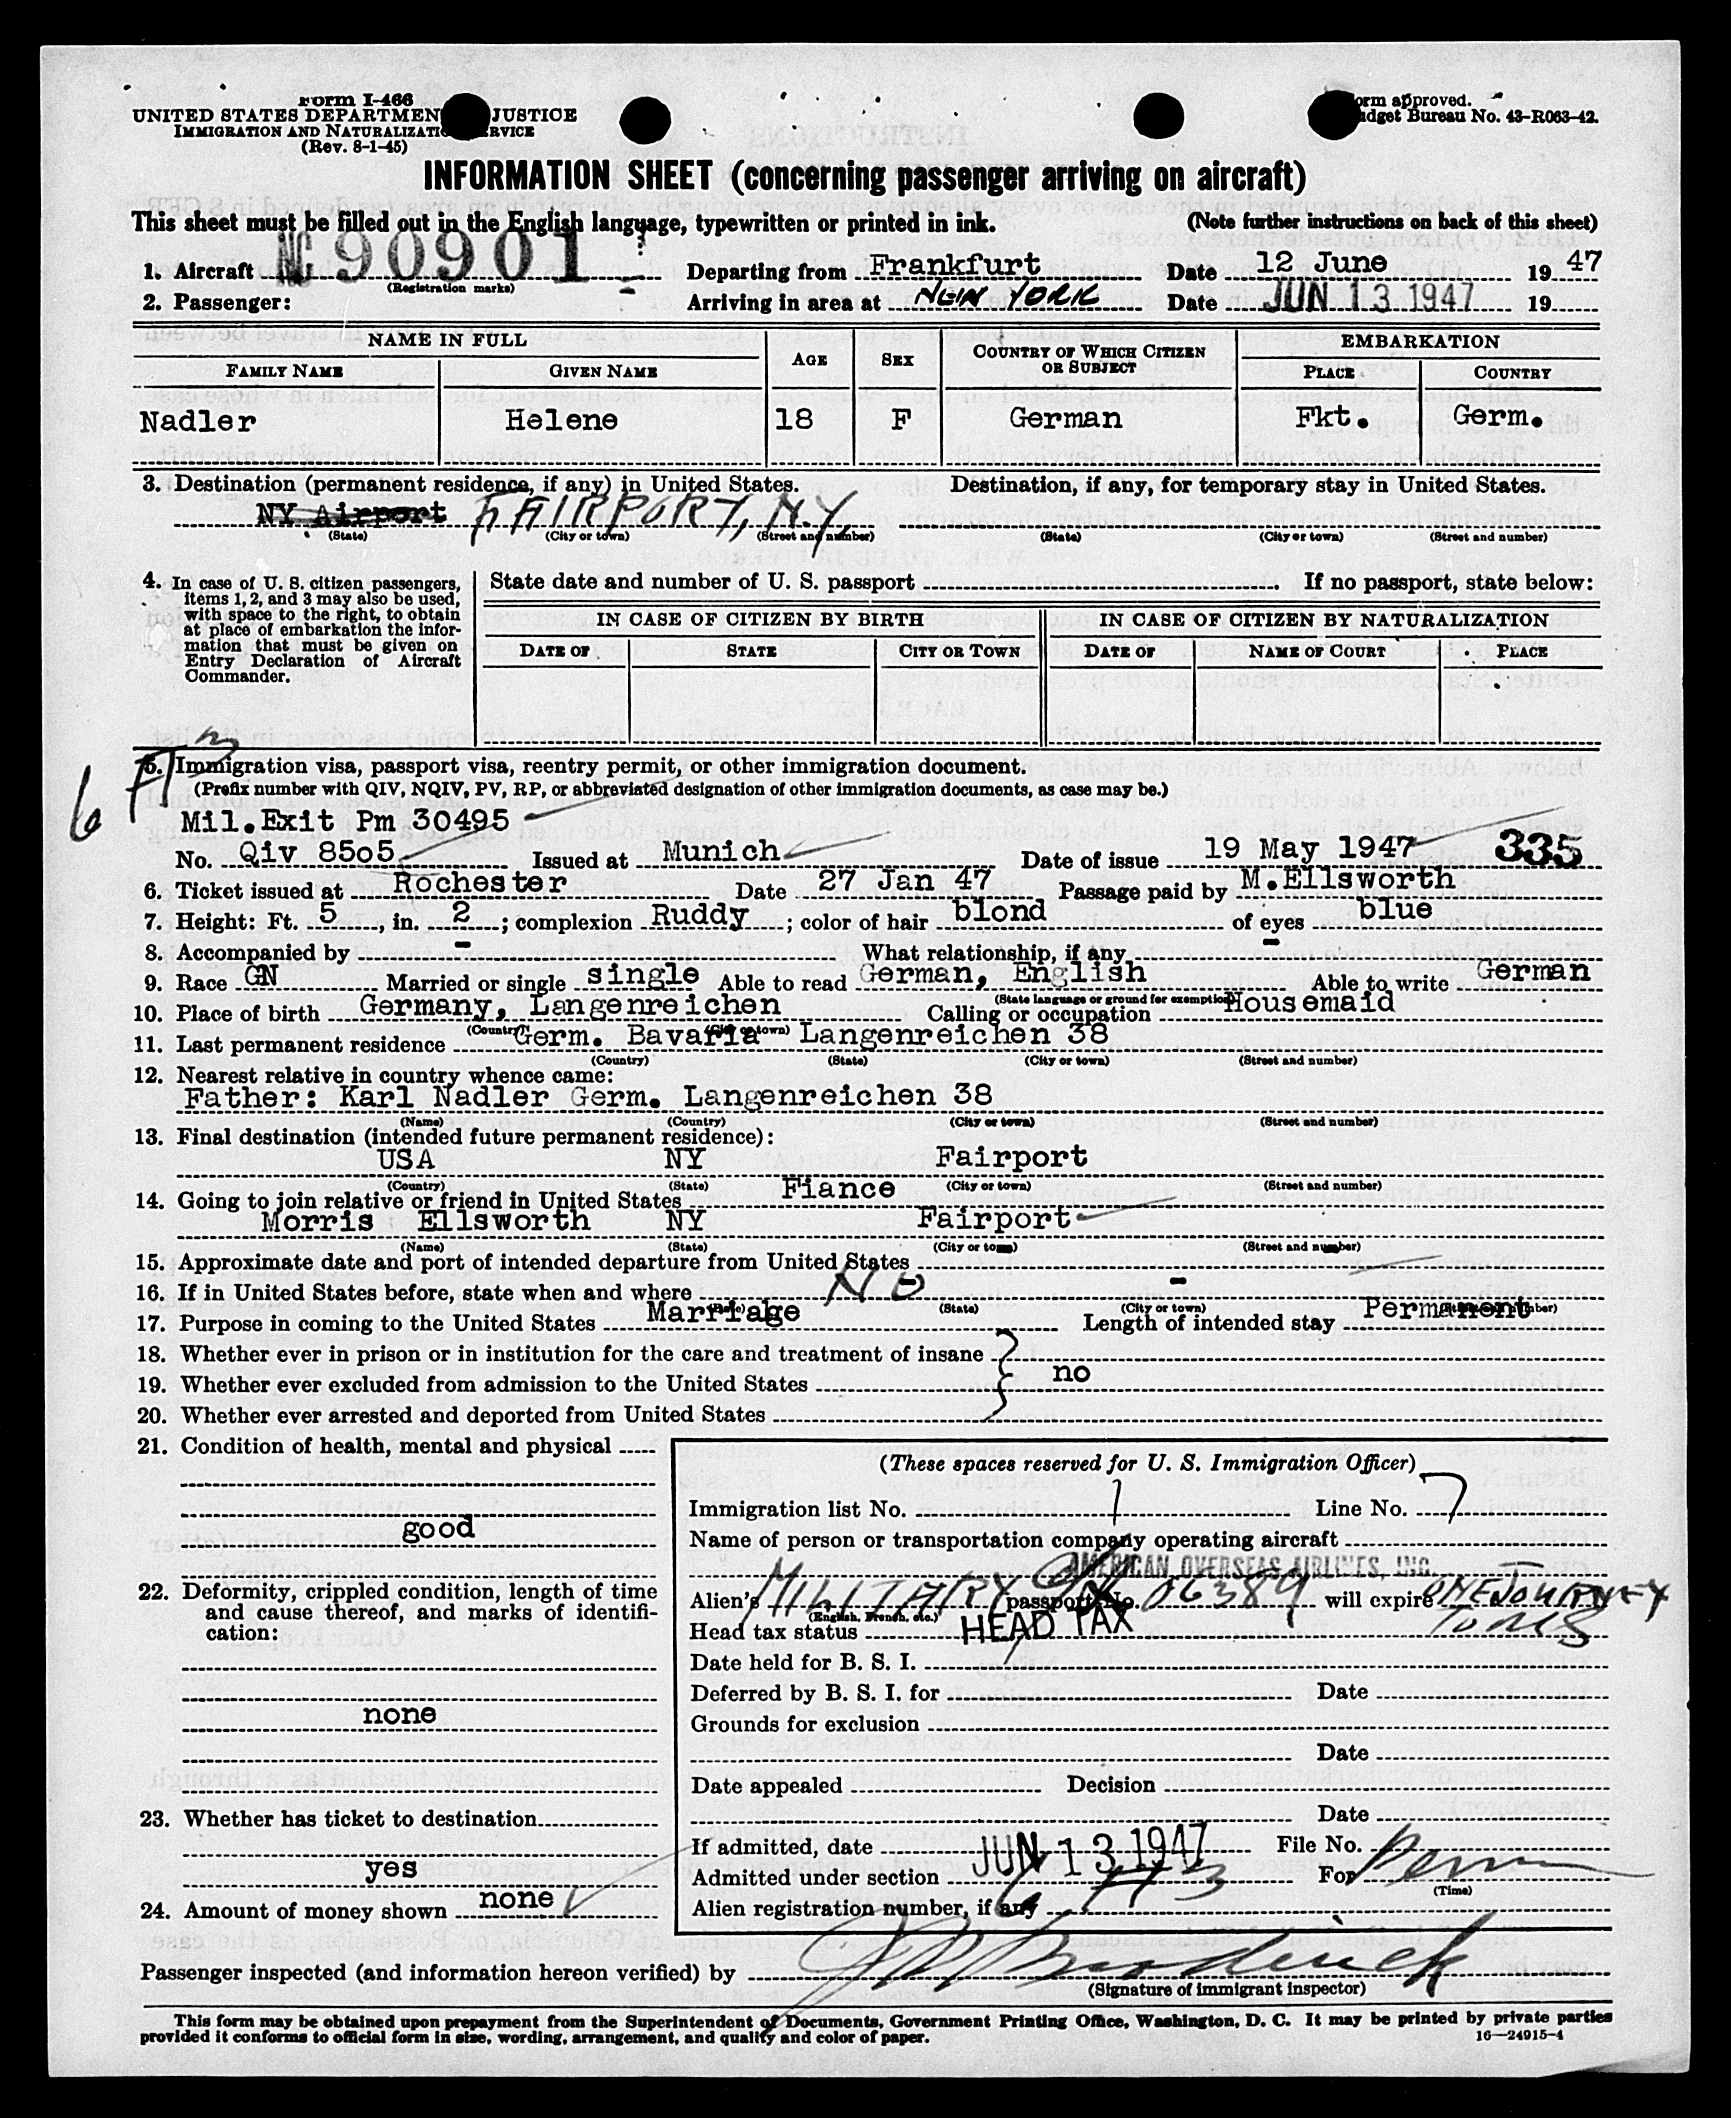 Form I-466
UNITED STATES DEPARTMEN JUSTICE
IMMIGRATION AND NATURALIZATI RVICE
(Rev. 8-1-45)
orm approved.
dget Bureau No. 43-R063-42.
INFORMATION SHEET (concerning passenger arriving on aircraft)
This sheet must be filled out in the English language, typewritten or printed in ink. (Note further instructions on back of this sheet)
1. Aircraft NC 90901 Departing from Frankfurt Date 12 June 1947
(Registration marks)
2. Passenger: Arriving in area at NEW YORK Date JUN 13 1947 19
NAME IN FULL AGE SEX COUNTRY OF WHICH CITIZEN OR SUBJECT EMBARKATION
FAMILY NAME GIVEN NAME PLACE COUNTRY
Nadler Helene 18 F German Fkt. Germ.
3. Destination (permanent residence, if any) in United States. Destination, if any, for temporary stay in United States.
NY Airport FAIRPORT, N.Y.
(State) (City or town) (Street and number) (State) (City or town) (Street and number)
4. In case of U. S. citizen passengers, items 1, 2, and 3 may also be used, with space to the right, to obtain at place of embarkation the information that must be given on Entry Declaration of Aircraft Commander.
State date and number of U. S. passport . If no passport, state below:
IN CASE OF CITIZEN BY BIRTH IN CASE OF CITIZEN BY NATURALIZATION
DATE OF STATE CITY OR TOWN DATE OF NAME OF COURT PLACE
6 A 3
5. Immigration visa, passport visa, reentry permit, or other immigration document.
(Prefix number with QIV, NQIV, PV, RP, or abbreviated designation of other immigration documents, as case may be.)
Mil.Exit Pm 30495
No. Qiv 85o5 Issued at Munich Date of issue 19 May 1947 335
6. Ticket issued at Rochester Date 27 Jan 47 Passage paid by M.Ellsworth
7. Height: Ft. 5, in. 2; complexion Ruddy; color of hair blond of eyes blue
8. Accompanied by - What relationship, if any -
9. Race GN Married or single single Able to read German, English Able to write German
(State language or ground for exemption)
10. Place of birth Germany, Langenreichen Calling or occupation Housemaid
(Country) (City or town)
11. Last permanent residence Germ. Bavaria Langenreichen 38
(Country) (State) (City or town) (Street and number)
12. Nearest relative in country whence came:
Father: Karl Nadler Germ. Langenreichen 38
(Name) (Country) (City or town) (Street and number)
13. Final destination (intended future permanent residence):
USA NY Fairport
(Country) (State) (City or town) (Street and number)
14. Going to join relative or friend in United States Fiance
Morris Ellsworth NY Fairport
(Name) (State) (City or town) (Street and number)
15. Approximate date and port of intended departure from United States
16. If in United States before, state when and where NO - -
(Date) (State) (City or town) (Street and number)
17. Purpose in coming to the United States Marriage Length of intended stay Permanent
18. Whether ever in prison or in institution for the care and treatment of insane
19. Whether ever excluded from admission to the United States no
20. Whether ever arrested and deported from United States
21. Condition of health, mental and physical
good
22. Deformity, crippled condition, length of time and cause thereof, and marks of identification:
none
23. Whether has ticket to destination
yes
24. Amount of money shown none
(These spaces reserved for U. S. Immigration Officer)
Immigration list No. 1 Line No. 7
Name of person or transportation company operating aircraft
AMERICAN OVERSEAS AIRLINES, INC.
Alien's MILITARY passport No. 06389 will expire ONE JOURNEY
(English, French, etc.)
TO U S
Head tax status HEAD TAX
Date held for B. S. I.
Deferred by B. S. I. for Date
Grounds for exclusion
Date
Date appealed Decision
Date
If admitted, date JUN 13 1947 File No.
Admitted under section 6 A 3 For Perm
(Time)
Alien registration number, if any
Passenger inspected (and information hereon verified) by Broderick
(Signature of immigrant inspector)
This form may be obtained upon prepayment from the Superintendent of Documents, Government Printing Office, Washington, D. C. It may be printed by private parties
provided it conforms to official form in size, wording, arrangement, and quality and color of paper. 16—24915-4